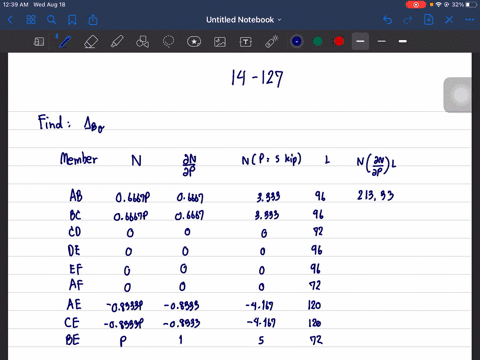 12:39 AM Wed Aug 18
32%
Untitled Notebook
14-127
Find: Δ_Bv
Member N ∂N/∂P N(P = 5 kip) L N(∂N/∂P)L
AB 0.6667P 0.6667 3.333 96 213.33
BC 0.6667P 0.6667 3.333 96
CD 0 0 0 72
DE 0 0 0 96
EF 0 0 0 96
AF 0 0 0 72
AE -0.8333P -0.8333 -4.167 120
CE -0.8333P -0.8333 -4.167 120
BE P 1 5 72